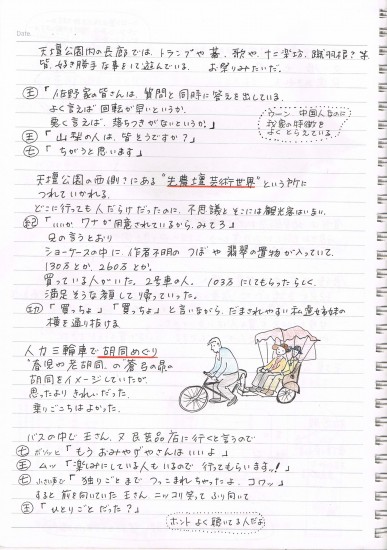 Date
天壇公園内の長廊では、トランプや碁、歌や、十二楽坊、蹴羽根?等
皆、好き勝手な事をして遊んでいる。 お祭りみたいだ。
王「佐野家の皆さんは、質問と同時に答えを出している。
よく言えば 回転が早いというか、
悪く言えば、落ちつきがないというか。」
王「山梨の人は、皆そうですか?」
七「ちがうと思います」
ウーン 中国人なのに
我家の特徴を
よくとらえている。
天壇公園の西側にある“先農壇芸術世界”という所に
つれていかれる。
どこに行っても人だらけだったのに、不思議とそこには観光客はいない。
「いいか、ワナが用意されているから、みてろ」
兄の言うとおり
ショーケースの中に、作者不明のつぼや翡翠の置物が入っていて、
130万とか、260万とか。
買っている人がいた。2号車の人。 103万にしてもらったらしく、
満足そうな顔して帰っていった。
「買っちょ」「買っちょ」と言いながら、だまされやすい私達姉妹の
横を通り抜ける
人力三輪車で胡同めぐり
胡同をイメージしていたが、
思ったより きれいだった。
乗りごこちはよかった。
バスの中で 王さん、又 民芸品店に行くと言うので
七 ボソッと「もう おみやげやさんは いいよ」
王 ムッ「楽しみにしている人もいるので 行ってもらいますッ!」
七 小さい声で「独りごとまで つっこまれちゃったよ、コワッ」
すると 前を向いていた 王さん ニッコリ笑って ふり向いて
王「ひとりごとだった?」
ホント よく聴いてる人だよ